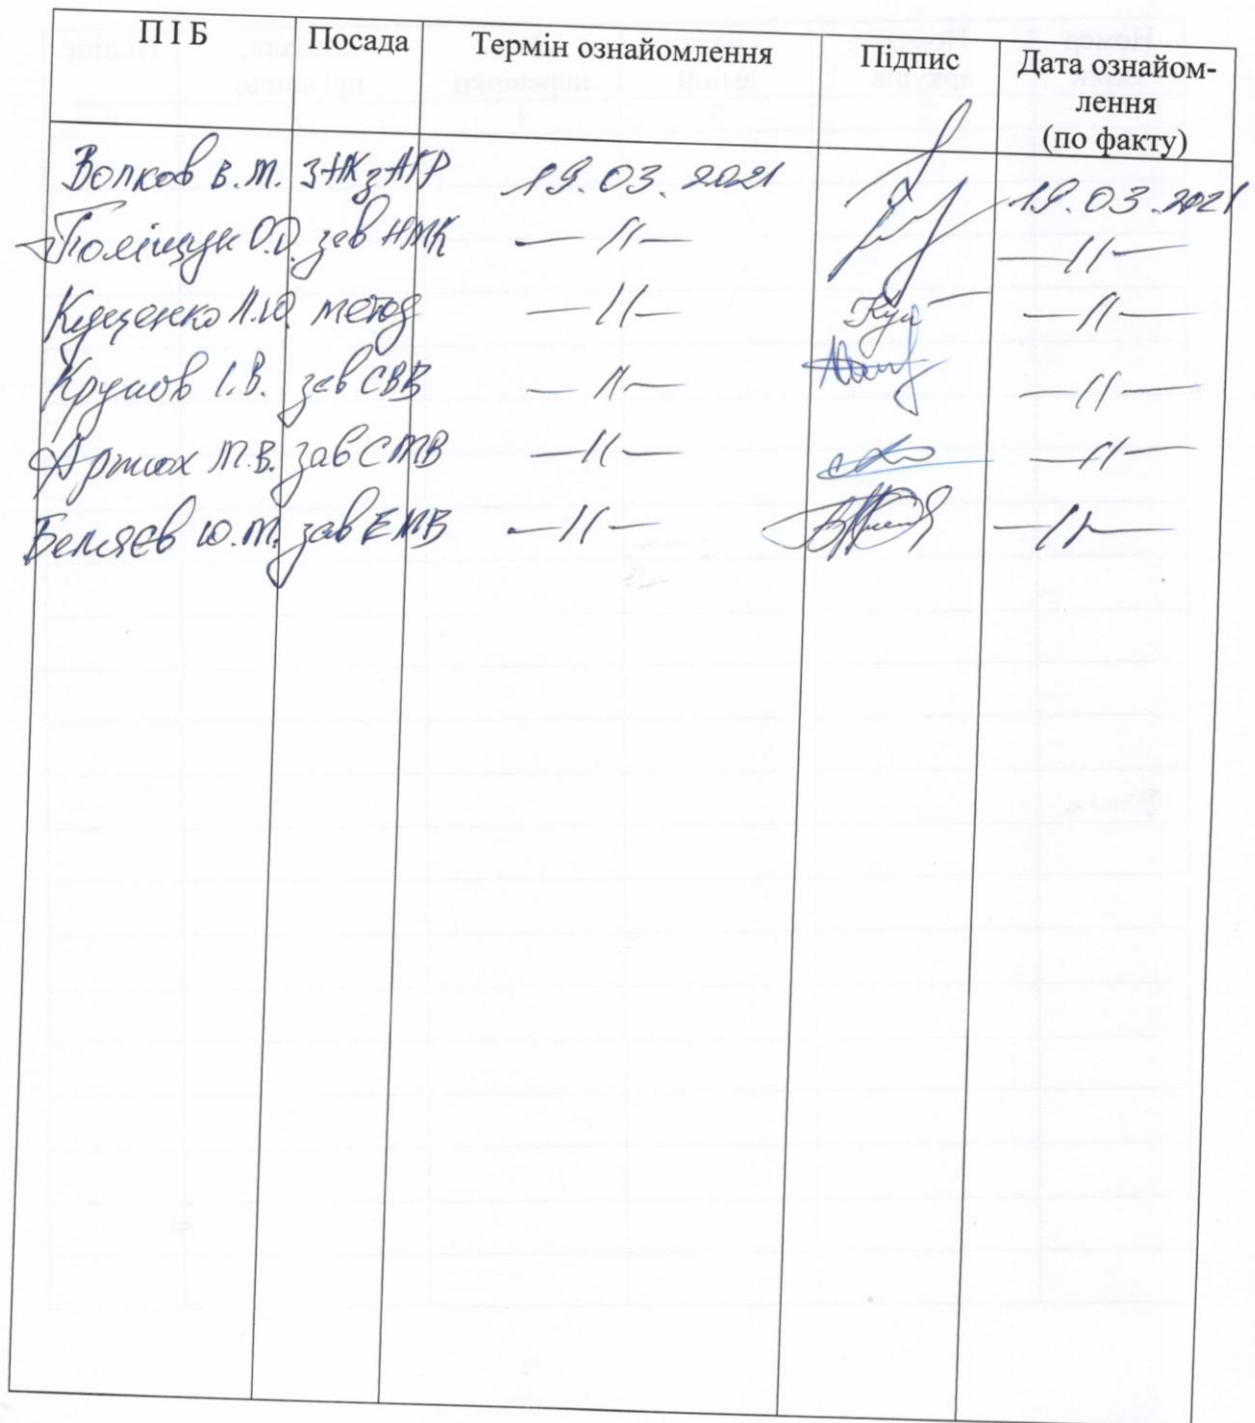 П І Б Посада Термін ознайомлення Підпис Дата ознайом-
лення
(по факту)
Волков В. М. ЗНК з АГР 19.03.2021 19.03.2021
Поліщук О.О. зав НМК —//— —//—
Куценко Л.Ю. метод —//— —//—
Крумов І.В. зав СВВ —//— —//—
Артюх М.В. зав СМВ —//— —//—
Беляєв Ю.М. зав ЕМВ —//— —//—